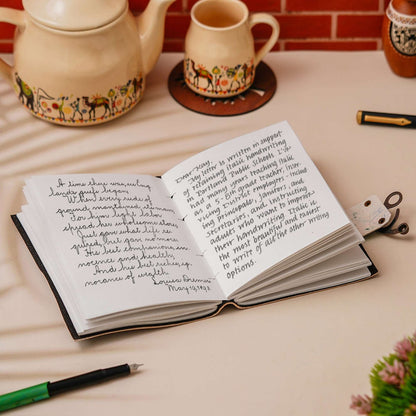 A time there was, ere
land's griefs began,
When every rood of
ground maintained its man
For him light labor
spread her wholesome store,
Just gave what life re-
quired, but gave no more.
His best companions, in-
nocence and health;
And his best riches, ig-
norance of wealth.
Dear Kay,
My letter is written in support
of retaining italic handwriting
in Portland Public Schools. I've
had many years teaching Italic
as a 5th grade teacher, for
District employees - includ
ing principals, janitors and
secretaries, and instructing
adults who want to improve
their handwriting. Italic is
the most beautiful and easiest
to write of all the other writing
options.